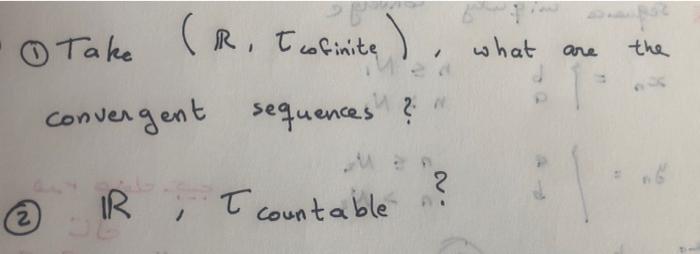 ① Take (ℝ, τ cofinite), what are the
convergent sequences ?
② ℝ, τ countable ?